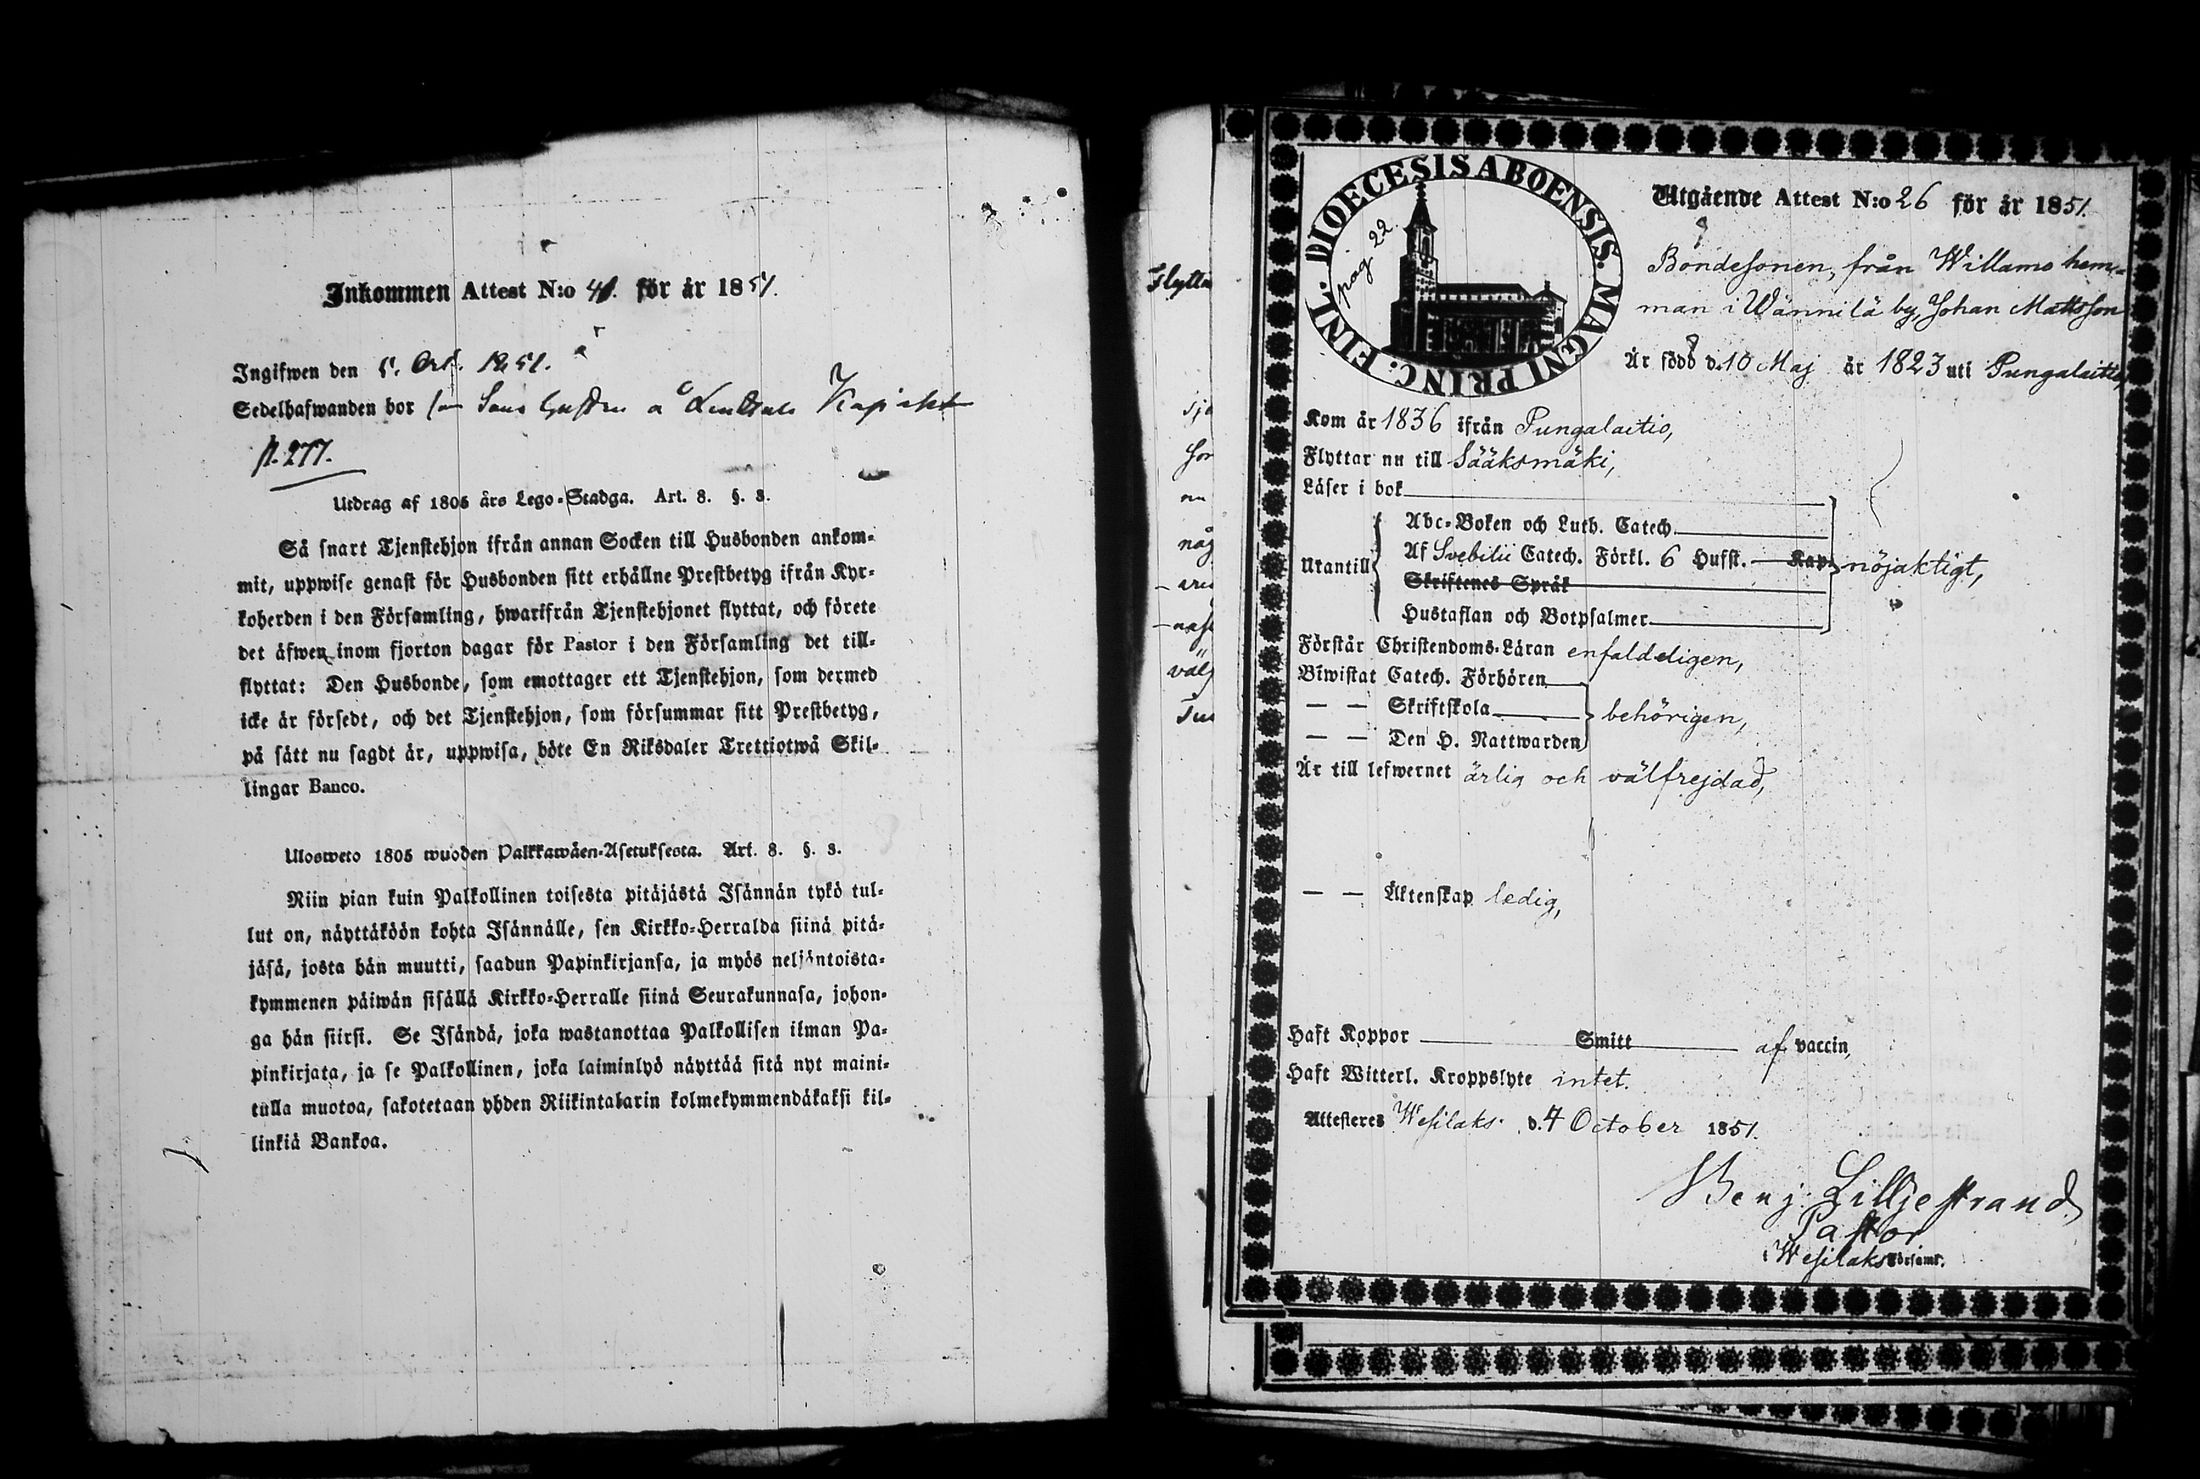 Inkommen Attest N:o 41. för år 1851.
Ingifwen den 5. Oct. 1851.
Sedelhafwanden bor Kapiskt
p. 277.
Utdrag af 1805 års Lego-Stadga. Art. 8. §. 3.
Så snart Tjenstehjon ifrån annan Socken till Husbonden ankom-
mit, uppwise genast för Husbonden sitt erhållne Prestbetyg ifrån Kyr-
koherden i den Församling, hwarifrån Tjenstehjonet flyttat, och förete
det äfwen inom fjorton dagar för Pastor i den Församling det till-
flyttat: Den Husbonde, som emottager ett Tjenstehjon, som dermed
icke är försedt, och det Tjenstehjon, som försummar sitt Prestbetyg,
på sätt nu sagdt är, uppwisa, böte En Riksdaler Trettiotwå Skil-
lingar Banco.
Ulosweto 1805 wuoden Palkkawäen-Asetuksesta. Art. 8. §. 3.
Niin pian kuin Palkollinen toisesta pitäjästä Isännän tykö tul-
lut on, näyttäköön kohta Isännälle, sen Kirkko-Herralda siinä pitä-
jäsä, josta hän muutti, saadun Papinkirjansa, ja myös neljäntoista-
kymmenen päiwän sisällä Kirkko-Herralle siinä Seurakunnasa, johon-
ga hän siirsi. Se Isändä, joka wastanottaa Palkollisen ilman Pa-
pinkirjata, ja se Palkollinen, joka laiminlyö näyttää sitä nyt maini-
tulla muotoa, sakotetaan yhden Riikintalarin kolmekymmendäkaksi kil-
linkiä Bankoa.
Flytta
DIOECESIS ABOENSIS. MAGNI PRINC: FINL.
pag 22
Utgående Attest N:o 26 för år 1851.
Bondesonen, från Willamo hem-
man i Wännilä by, Johan Mattsson
Är född d. 10 Maj år 1823 uti Pungalaitio,
Kom år 1836 ifrån Pungalaitio,
Flyttar nu till Sääksmäki,
Läser i bok
Abc-Boken och Luth. Catech.
Utantill Af Svebilii Catech. Förkl. 6 Hufst. Kap. nöjaktigt,
Skriftenes Språk
Hustaflan och Botpsalmer
Förstår Christendoms-Läran enfalddigen,
Biwistat Catech. Förhören
— — Skriftskola behörigen,
— — Den H. Nattwarden
Är till lefwernet ärlig och välfrejdad,
— — Äktenskap ledig,
Haft Koppor Smitt af vaccin,
Haft Witterl. Kroppslyte intet.
Attesteres Wesilaks. d. 4 October 1851.
Benj. Lilljestrand
Pastor
i Wesilaks Församl.